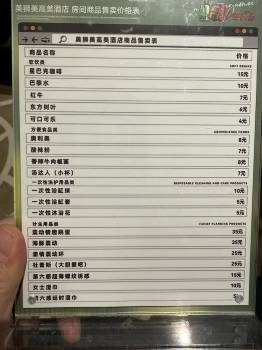 美狮美高美酒店 房间商品售卖价格表
美狮美高美酒店商品售卖表
商品名称 价格
软饮类 SOFT DRINKS
星巴克咖啡 15元
巴黎水 10元
红牛 7元
东方树叶 6元
可口可乐 6元
方便食品类 CONVENIENCE FOODS
奥利奥 8元
酸辣粉 7元
香辣牛肉板面 8元
汤达人（小杯） 7元
一次性洗护用品类 DISPOSABLE CLEANING AND CARE PRODUCTS
一次性浴缸罩 10元
一次性浴缸套 5元
一次性沐浴花 5元
计生用品类 FAMILY PLANNING PRODUCTS
震动情趣跳蛋 35元
海豚震动 35元
激情震动环 25元
杜蕾斯（大胆爱吧） 25元
第六感超薄螺纹诱惑 15元
女士湿巾 10元
第六感延时湿巾 5元